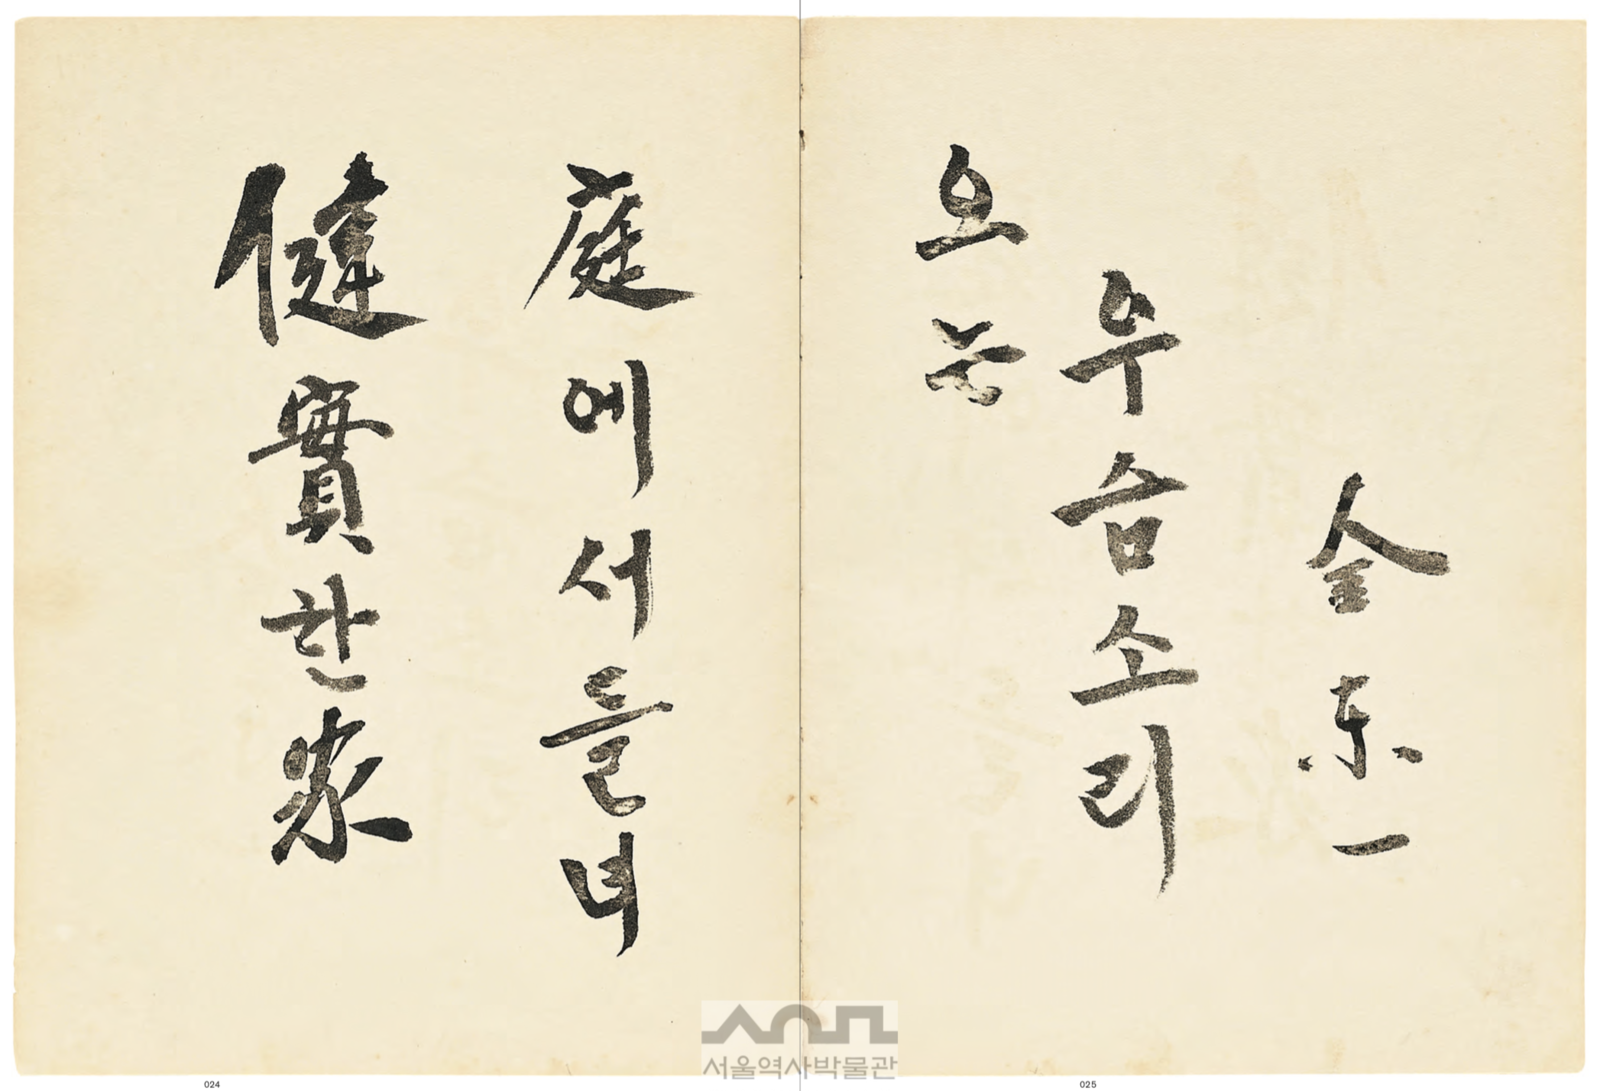 健實한家
庭에서들녀
오는
우슴소리
金東一
서울역사박물관
024
025